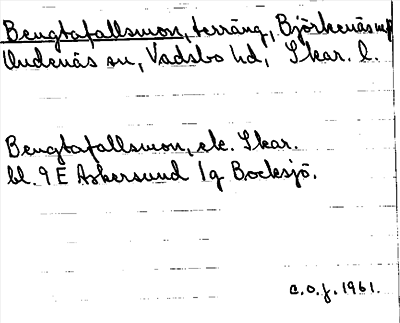 Bengtafallsmon, terräng, Björkenäs mf
Undenäs sn, Vadsbo hd, Skar. l.
Bengtafallsmon, ek. Skar.
bl. 9 E Askersund 1g Bocksjö.
c.o.j. 1961.